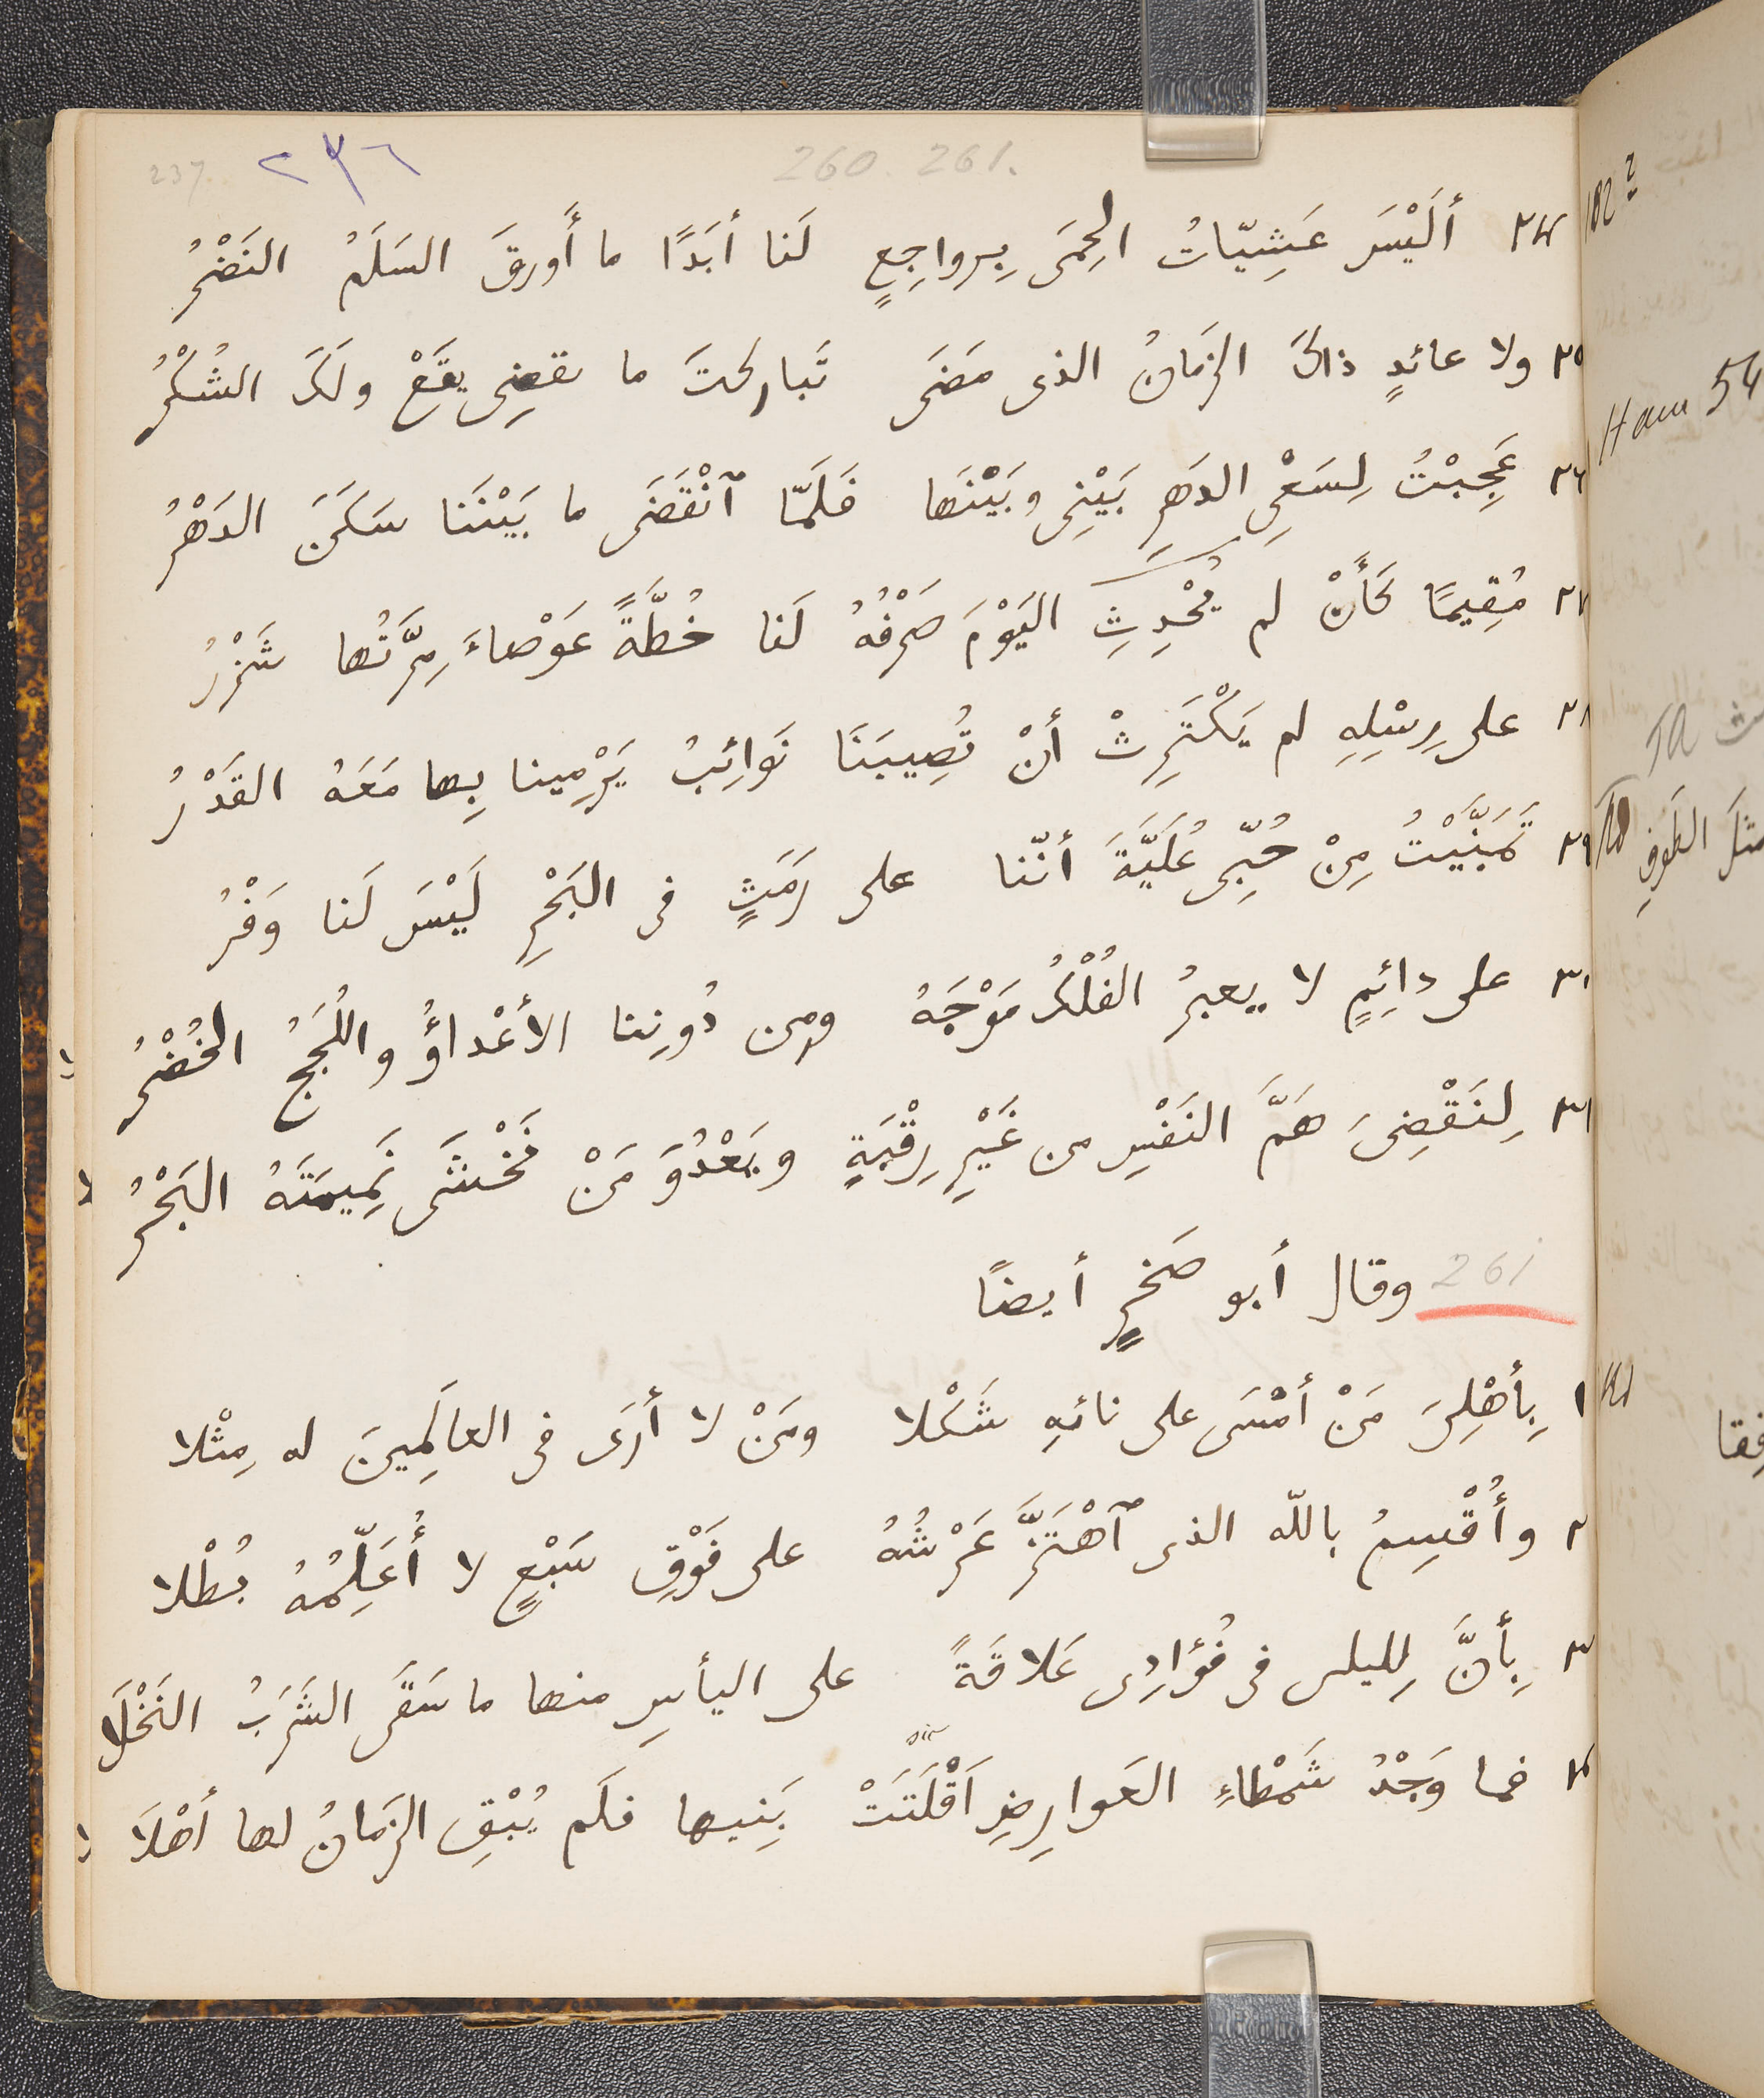 237. ٢٣٦ 260. 261.
٢٤ أَلَيْسَ عَشِيّاتُ الحِمَى بِرواجِعٍ لَنا أبَدًا ما أَورقَ السَلَمُ النَضْرُ
٢٥ ولا عائدٍ ذاكَ الزَمانُ الذى مَضَى تَباركتَ ما تقضِى يقَعْ ولَكَ الشُكْرُ
٢٦ عَجِبْتُ لِسَعْىِ الدَهرِ بَيْنِى وبَيْنَها فَلَمّا ٱنْقَضَى ما بَيْنَنا سَكَنَ الدَهْرُ
٢٧ مُقِيمًا كَأَنْ لم يُحْدِثِ اليَوْمَ صَرْفُهُ لَنا خُطَّةً عَوْصاءَ مِرَّتُها شَزْرُ
٢٨ على رِسْلِهِ لم يَكْتَرِثْ أنْ تُصِيبَنَا نَوائِبُ يَرْمِينا بِها مَعَهُ القَدْرُ
٢٩ تَمَنَّيْتُ مِنْ حُبِّى عُلَيَّةَ أنّنا على رَمَثٍ فى البَحْرِ لَيْسَ لَنا وَفْرُ
٣٠ على دائِمٍ لا يعبرُ الفُلْكُ مَوْجَهُ ومِن دُونِنا الأعْداءُ واللُجَجُ الخُضْرُ
٣١ لِنَقْضِىَ هَمَّ النَفْسِ من غَيْرِ رِقْبَةٍ ويَعْدُوَ مَنْ نَخْشَى نَمِيمَتَهُ البَحْرُ
261 وقال أبو صَخرٍ أيضًا
١ بِأَهْلِىَ مَنْ أَمْسَى على نائهِ شَكْلا ومَنْ لا أَرَى فى العالَمِينَ له مِثْلا
٢ وأُقْسِمُ باللّه الذى ٱهْتَزَّ عَرْشُهُ على فَوْقِ سَبْعٍ لا أُعَلِّمُهُ بُطْلا
٣ بِأَنَّ لِليلى فى فُؤَادِى عَلاقَةً على اليأسِ منها ما سَقَى الشَرَبُ النَخْلَا
٤ فما وَجْدُ شَمْطاءِ العَوارِضِ اَقْلَتَتْ بَنِيها فلَم يُبْقِ الزَمانُ لها أَهْلَا
Ham 54
TA